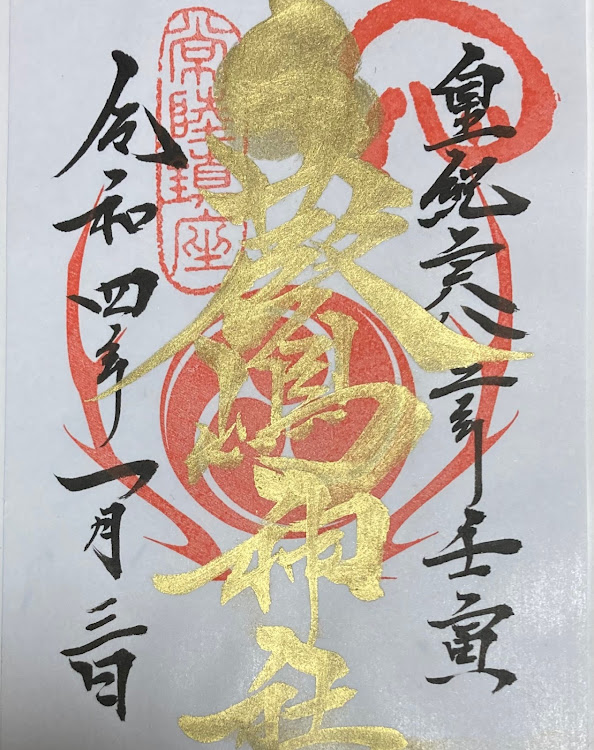 皇紀二六八二年壬寅
常陸鎮座
嶋神社
令和四年一月三日